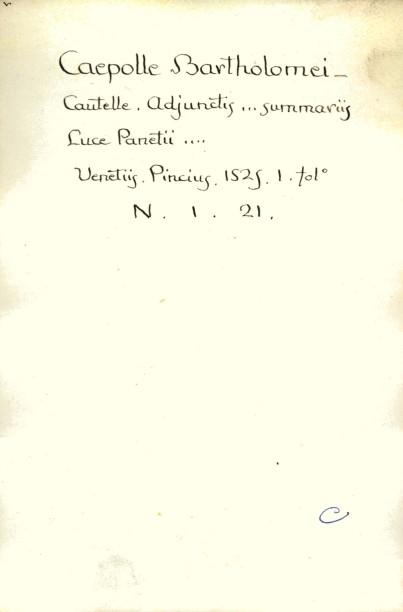 Caepolle Bartholomei -
Cautelle. Adjunctis ... summariis
Luce Panetii ....
Venetiis. Pincius. 1525. 1. fol°
N. 1. 21.
C